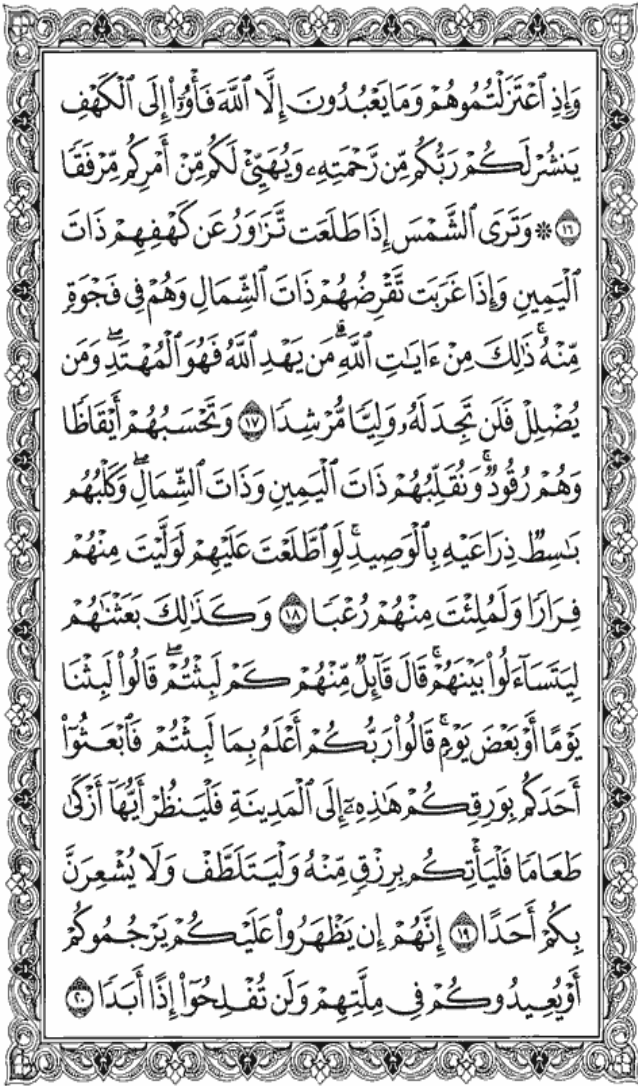 وَإِذِ ٱعْتَزَلْتُمُوهُمْ وَمَا يَعْبُدُونَ إِلَّا ٱللَّهَ فَأْوُۥٓا۟ إِلَى ٱلْكَهْفِ
يَنشُرْ لَكُمْ رَبُّكُم مِّن رَّحْمَتِهِۦ وَيُهَيِّئْ لَكُم مِّنْ أَمْرِكُم مِّرْفَقًا
١٦ ۞ وَتَرَى ٱلشَّمْسَ إِذَا طَلَعَت تَّزَٰوَرُ عَن كَهْفِهِمْ ذَاتَ
ٱلْيَمِينِ وَإِذَا غَرَبَت تَّقْرِضُهُمْ ذَاتَ ٱلشِّمَالِ وَهُمْ فِى فَجْوَةٍ
مِّنْهُ ۚ ذَٰلِكَ مِنْ ءَايَٰتِ ٱللَّهِ ۗ مَن يَهْدِ ٱللَّهُ فَهُوَ ٱلْمُهْتَدِ ۖ وَمَن
يُضْلِلْ فَلَن تَجِدَ لَهُۥ وَلِيًّا مُّرْشِدًا ١٧ وَتَحْسَبُهُمْ أَيْقَاظًا
وَهُمْ رُقُودٌ ۚ وَنُقَلِّبُهُمْ ذَاتَ ٱلْيَمِينِ وَذَاتَ ٱلشِّمَالِ ۖ وَكَلْبُهُم
بَٰسِطٌ ذِرَاعَيْهِ بِٱلْوَصِيدِ ۚ لَوِ ٱطَّلَعْتَ عَلَيْهِمْ لَوَلَّيْتَ مِنْهُمْ
فِرَارًا وَلَمُلِئْتَ مِنْهُمْ رُعْبًا ١٨ وَكَذَٰلِكَ بَعَثْنَٰهُمْ
لِيَتَسَآءَلُوا۟ بَيْنَهُمْ ۚ قَالَ قَآئِلٌ مِّنْهُمْ كَمْ لَبِثْتُمْ ۖ قَالُوا۟ لَبِثْنَا
يَوْمًا أَوْ بَعْضَ يَوْمٍ ۚ قَالُوا۟ رَبُّكُمْ أَعْلَمُ بِمَا لَبِثْتُمْ فَٱبْعَثُوٓا۟
أَحَدَكُم بِوَرِقِكُمْ هَٰذِهِۦٓ إِلَى ٱلْمَدِينَةِ فَلْيَنظُرْ أَيُّهَآ أَزْكَىٰ
طَعَامًا فَلْيَأْتِكُم بِرِزْقٍ مِّنْهُ وَلْيَتَلَطَّفْ وَلَا يُشْعِرَنَّ
بِكُمْ أَحَدًا ١٩ إِنَّهُمْ إِن يَظْهَرُوا۟ عَلَيْكُمْ يَرْجُمُوكُمْ
أَوْ يُعِيدُوكُمْ فِى مِلَّتِهِمْ وَلَن تُفْلِحُوٓا۟ إِذًا أَبَدًا ٢٠